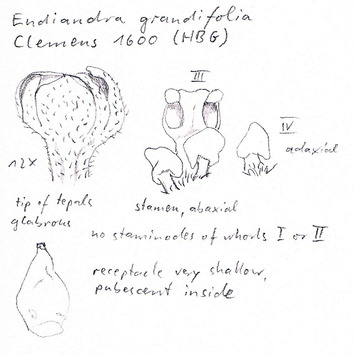 Endiandra grandifolia
Clemens 1600 (HBG)
III
IV
adaxial
12x
tip of tepals
glabrous
stamen, abaxial
no staminodes of whorls I or II
receptacle very shallow,
pubescent inside